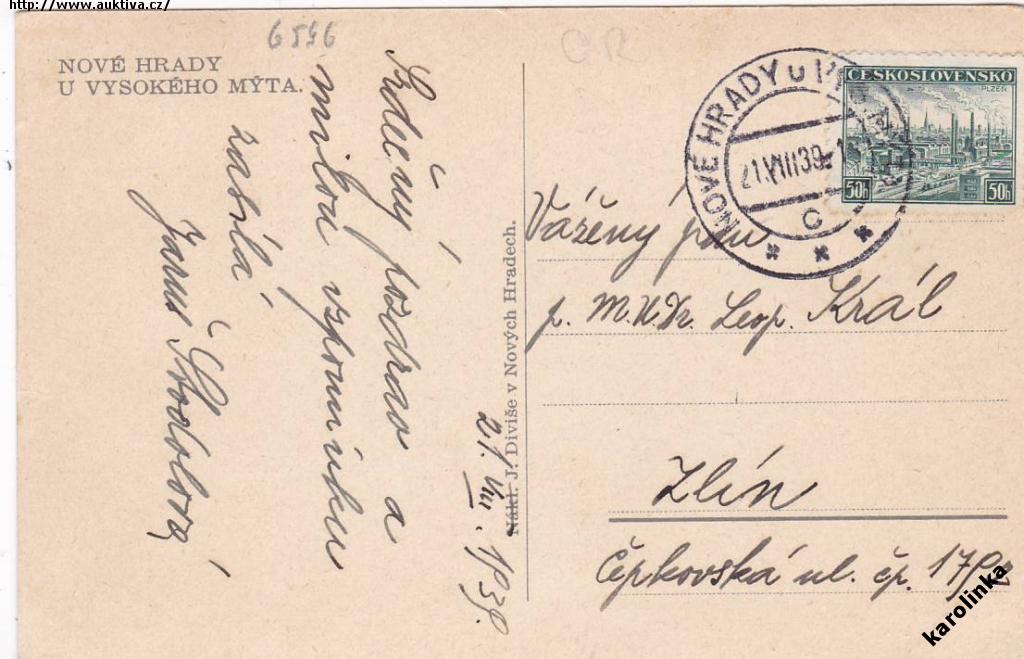 http://www.auktiva.cz/
6596
ČR
NOVÉ HRADY
U VYSOKÉHO MÝTA.
Srdečný pozdrav a
milou vzpomínku
zasílá
Škodolová
21. VIII. 1939.
Nákl. J. Diviše v Nových Hradech.
NOVÉ HRADY u
21.VIII 39
C
ČESKOSLOVENSKO
PLZEŇ
50h 50h
Vážený pan
p. M.U.Dr. Leop. Král
Zlín
Čepkovská ul. čp.
karolinka